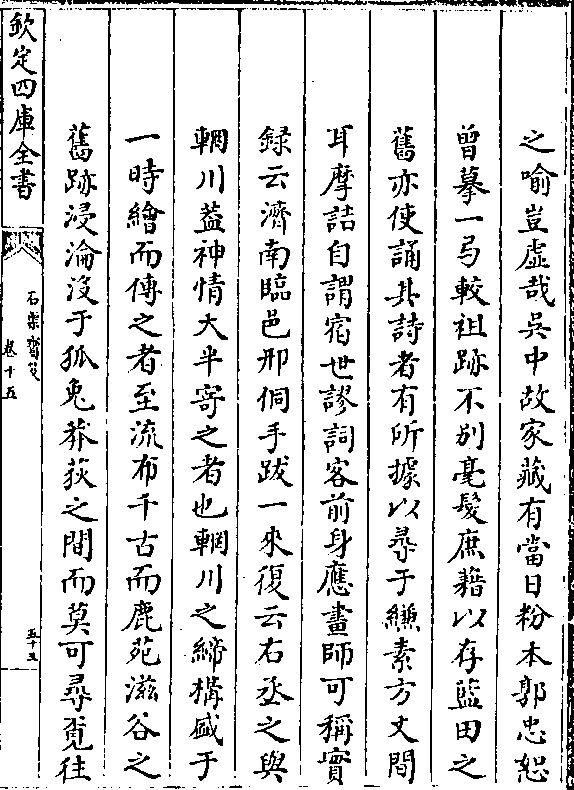 之喻豈虛哉吳中故家藏有當日粉本郭忠恕
曾摹一弓較祖跡不别毫髮庶藉以存藍田之
舊亦使誦其詩者有所據以尋于縑素方丈間
耳摩詰自謂宿世謬詞客前身應畫師可稱實
録云濟南臨邑邢侗手跋一來復云右丞之與
輞川葢神情大半寄之者也輞川之締構盛于
一時繪而傳之者至流布千古而鹿苑滋谷之
舊跡浸淪沒于狐兎莽荻之間而莫可尋覔往
欽定四庫全書
石渠寳笈
卷十五
五十五